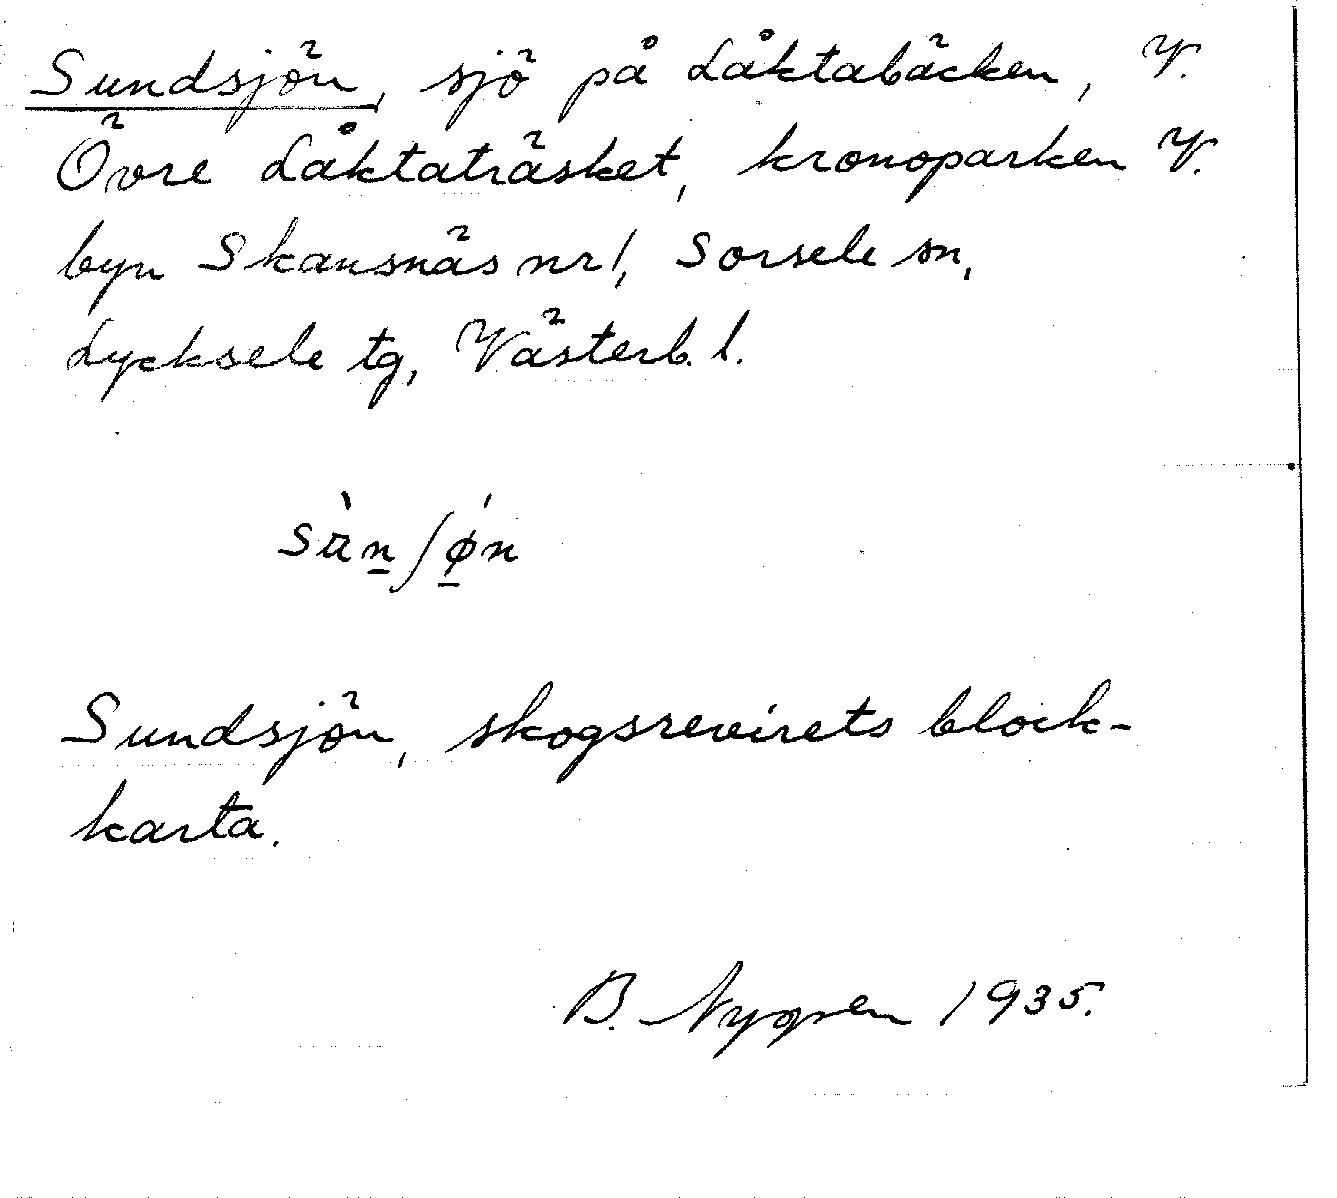 Sundsjön, sjö på Låktabäcken, V.
Övre Låktaträsket, kronoparken V.
byn Skansnäs nr 1, Sorsele sn,
Lycksele tg, Västerb. l.
Sundsjön, skogsrevirets block-
karta.
B. Nygren 1935.